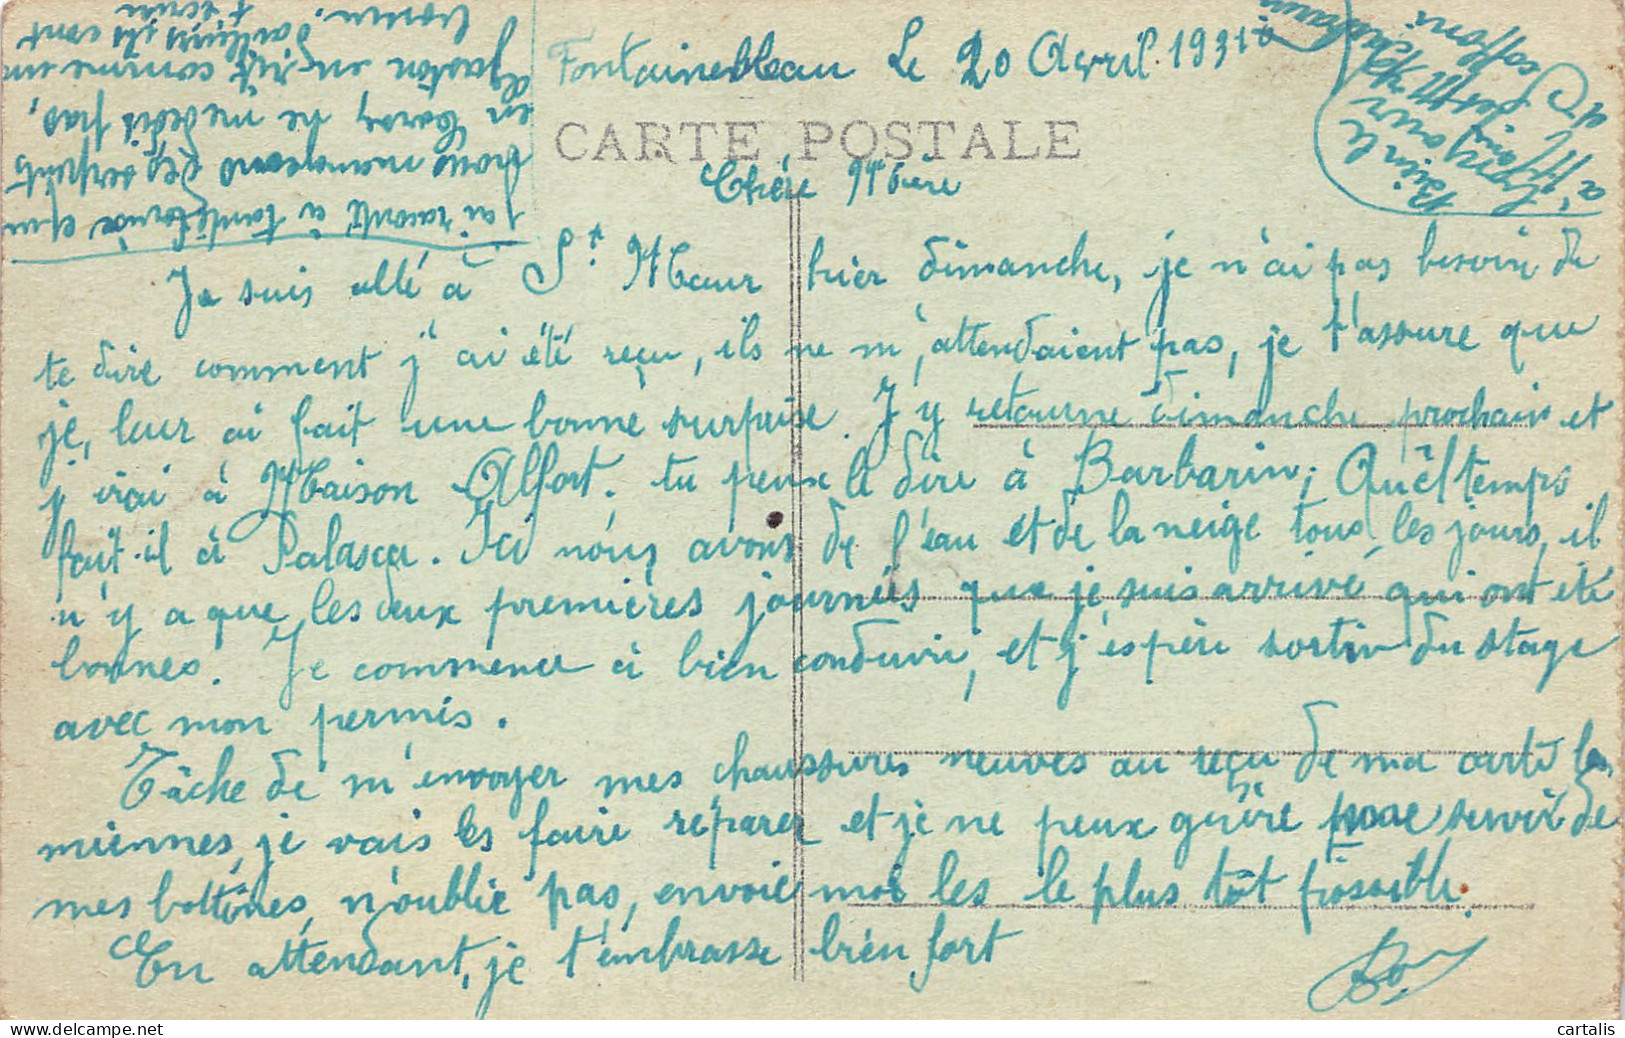 Fontainebleau Le 20 Avril 1931
CARTE POSTALE
Chère Mère
Je suis allé à St Maur hier dimanche, je n'ai pas besoin de
te dire comment j'ai été reçu, ils ne m'attendaient pas, je t'assure que
je, leur ai fait une bonne surprise. J'y retourne dimanche prochain et
j'irai à Maison Alfort. tu peux le dire à Barbarin; Quêl temps
fait-il à Palasca. Ici nous avons de l'eau et de la neige tous les jours, il
n'y a que les deux premières journées que je suis arrivé qui ont été
bonnes. Je commence à bien conduire, et j'espère sortir du stage
avec mon permis.
Tâche de m'envoyer mes chaussures neuves au reçu de ma carte les
miennes, je vais les faire réparer et je ne peux guère me servir de
mes bottines, n'oublie pas, envoie moi les le plus tôt possible.
En attendant, je t'embrasse bien fort
j'ai raconté à
nous des serpents
en Corse, ne médis pas,
Gaston en rit comme un
d'ailleurs ils sont
Bien le
bonjour
à
et
cartalis